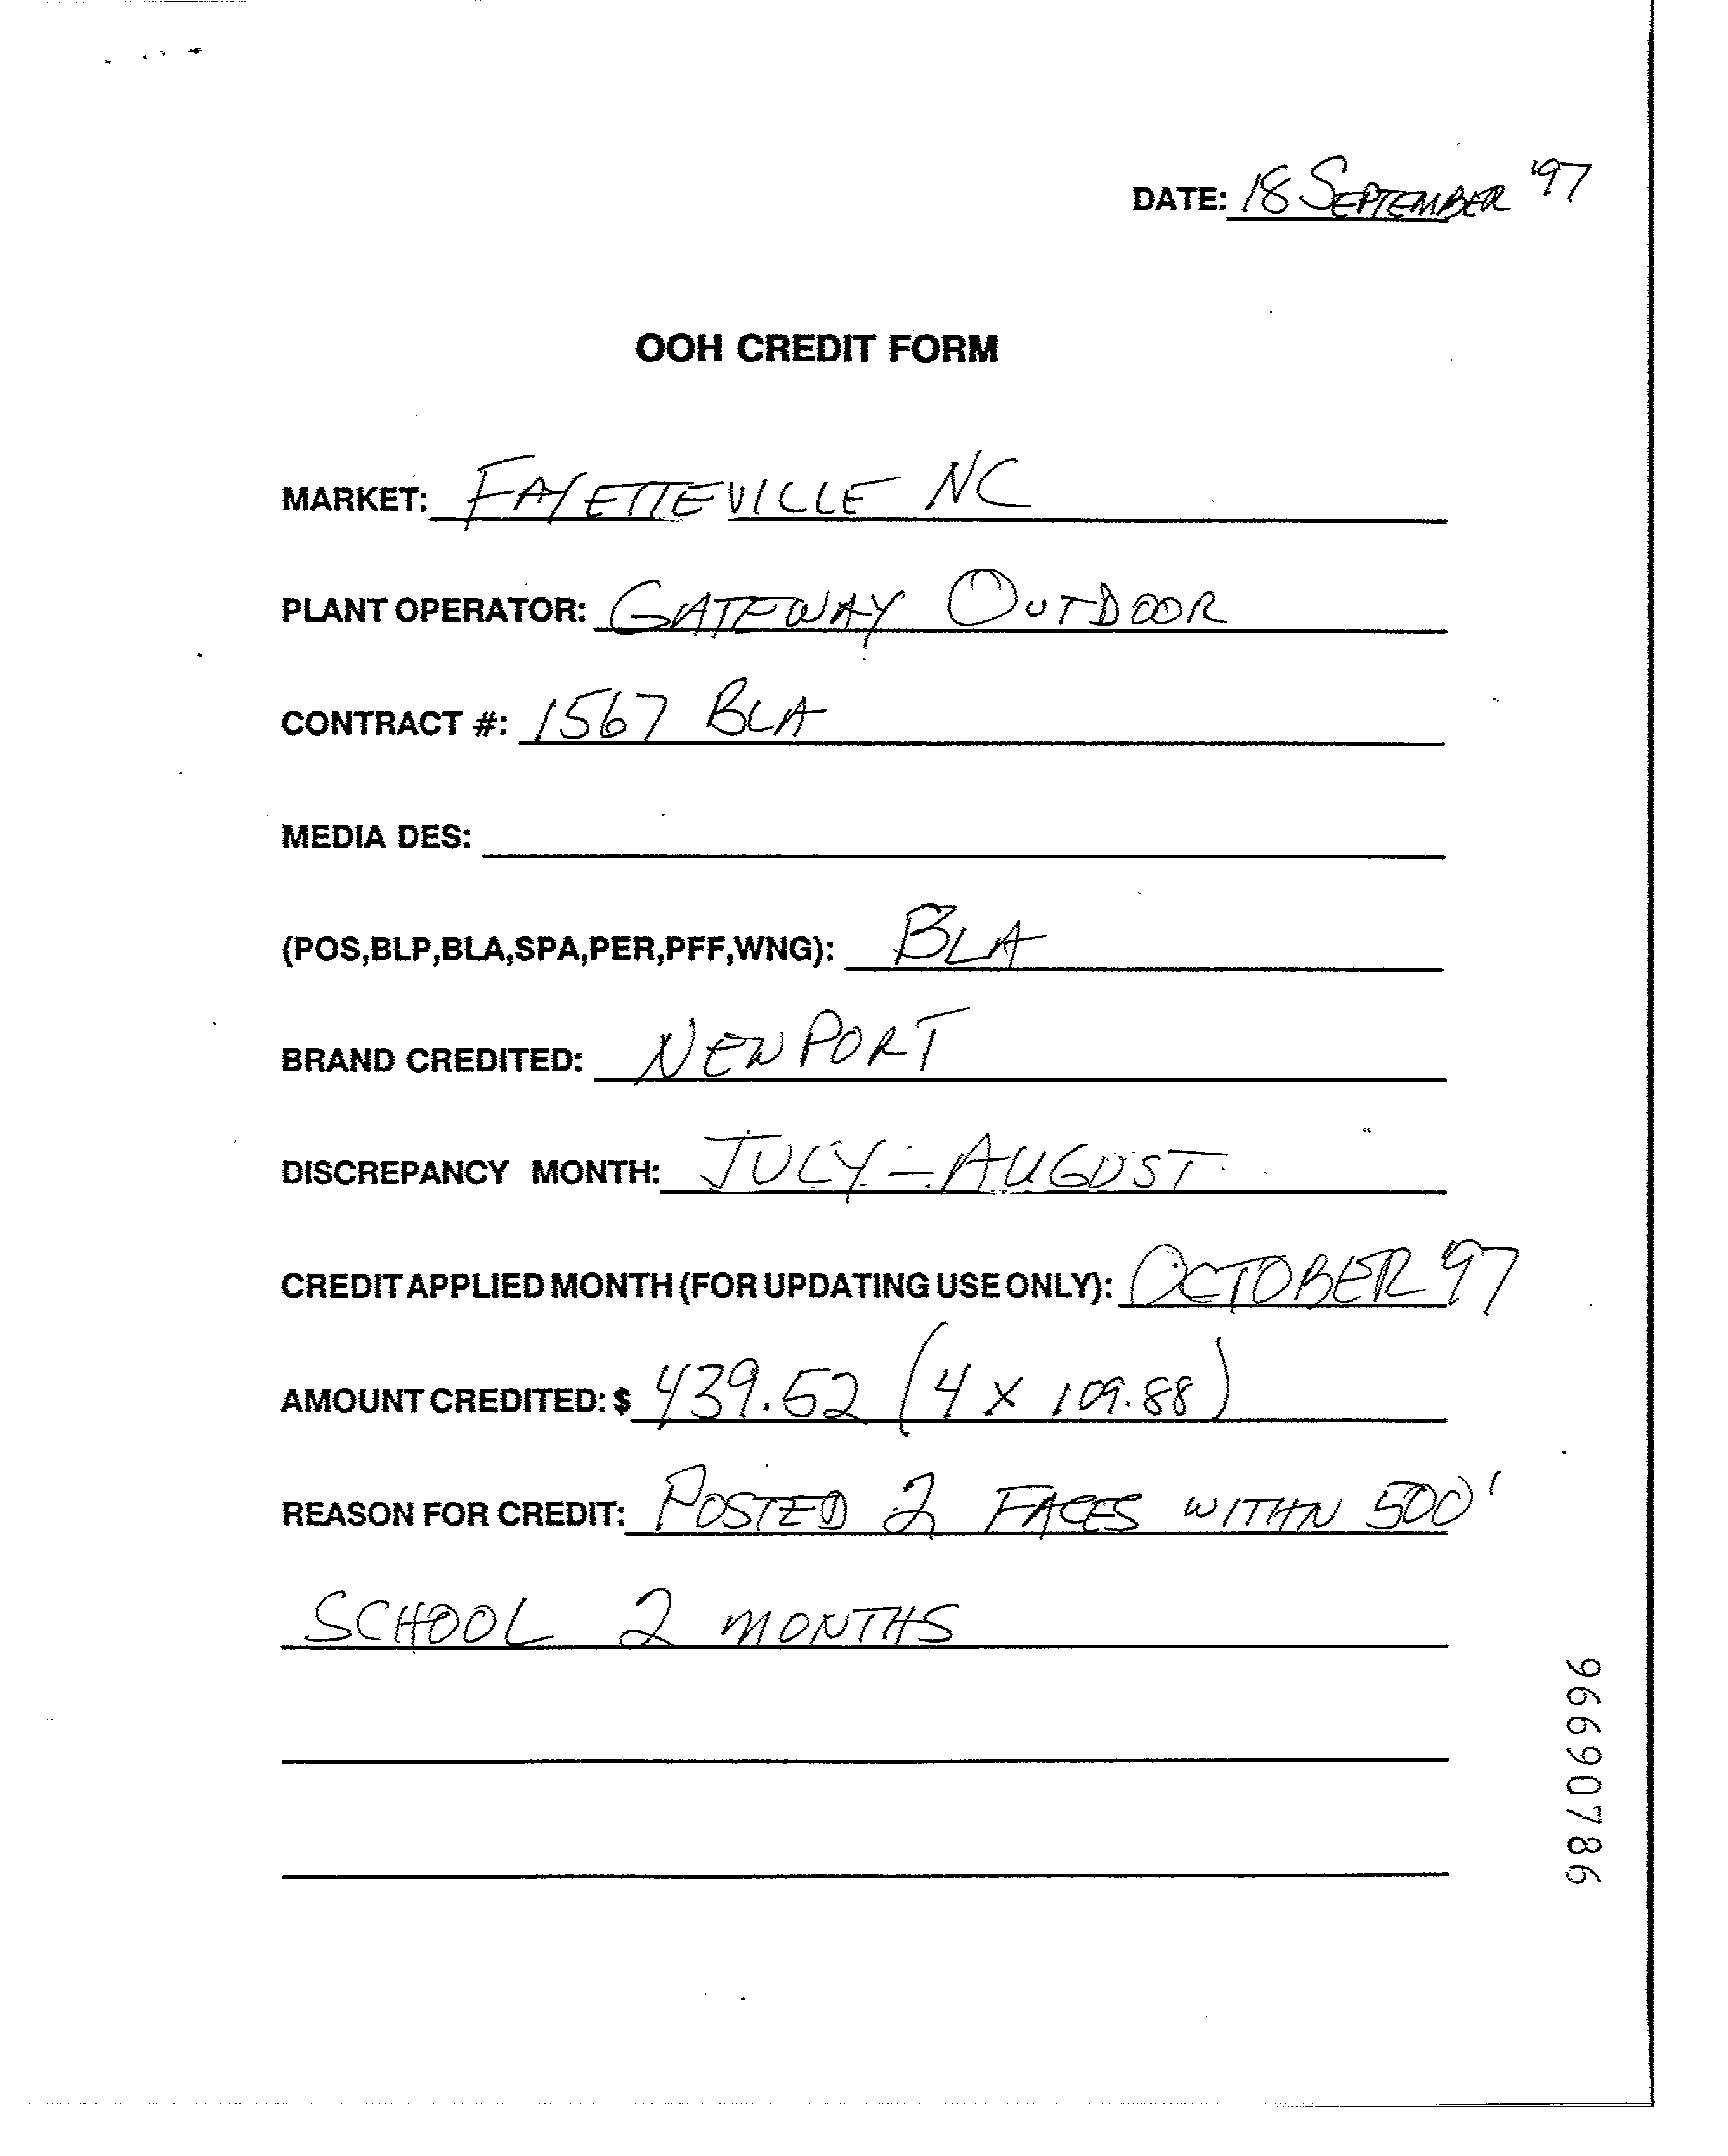 DATE: 18 SEPTEMBER '97
OOH CREDIT FORM
MARKET: FAYETTEVILLE NC
PLANT OPERATOR: GATEWAY OUTDOOR
CONTRACT #: 1567 BLA
MEDIA DES:
(POS,BLP,BLA,SPA,PER,PFF,WNG): BLA
BRAND CREDITED: NEWPORT
DISCREPANCY MONTH: JULY - AUGUST
CREDIT APPLIED MONTH (FOR UPDATING USE ONLY): OCTOBER 97
AMOUNT CREDITED: $ 439.52 (4 X 109.88)
REASON FOR CREDIT: POSTED 2 FACES WITHIN 500'
SCHOOL 2 MONTHS
96690786